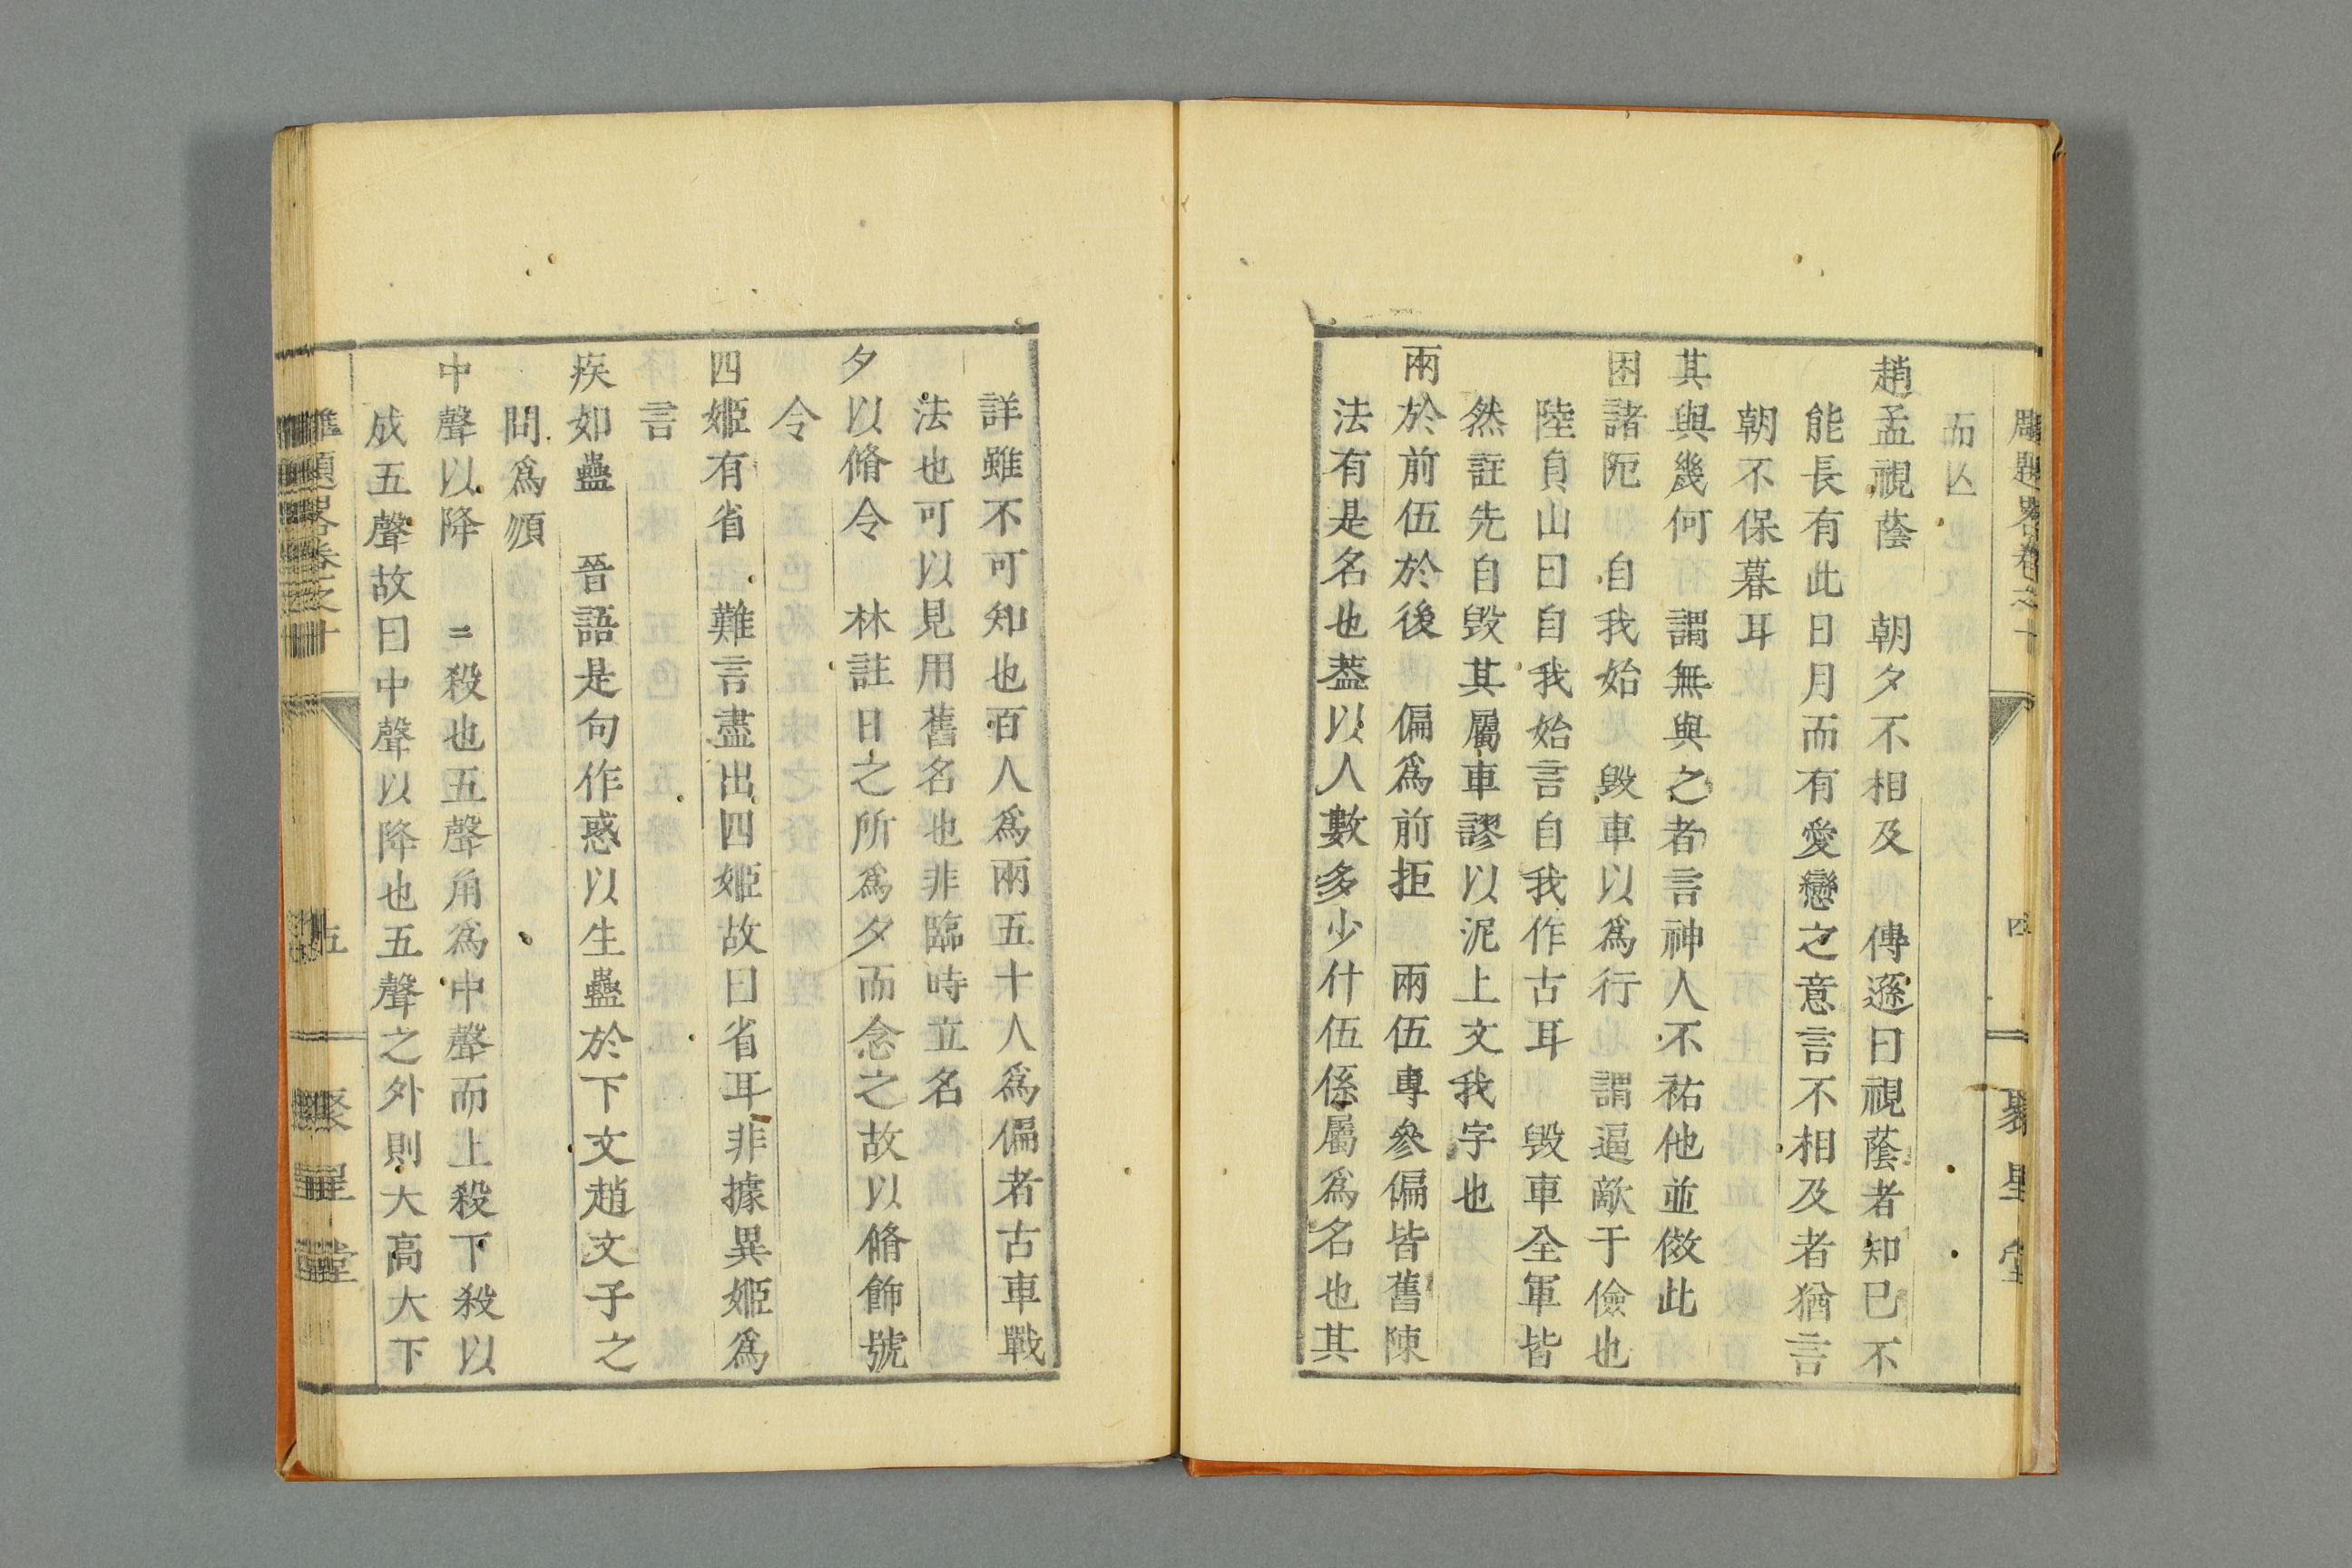 雕題畧卷之十
四
聚星堂
而亾
趙孟視蔭　朝夕不相及　傳遜曰視蔭者知已不
能長有此日月而有愛戀之意言不相及者猶言
朝不保暮耳
其與幾何　謂無與之者言神人不祐他並傚此
困諸阨　自我始　毀車以爲行　謂逼敵于儉也
陸貞山曰自我始言自我作古耳　毀車全軍皆
然註先自毀其屬車謬以泥上文我字也
兩於前伍於後　偏爲前拒　兩伍專參偏皆舊陳
法有是名也葢以人數多少什伍係屬爲名也其
詳雖不可知也百人爲兩五十人爲偏者古車戰
法也可以見用舊名也非臨時立名
夕以脩令　林註日之所爲夕而念之故以脩飾號
令
四姬有省　難言盡出四姬故曰省耳非據異姬爲
言
疾如蠱　晉語是句作惑以生蠱於下文趙文子之
問爲順
中聲以降　殺也五聲角爲中聲而上殺下殺以
成五聲故曰中聲以降也五聲之外則大高大下
雕題畧卷之十
五
聚星堂